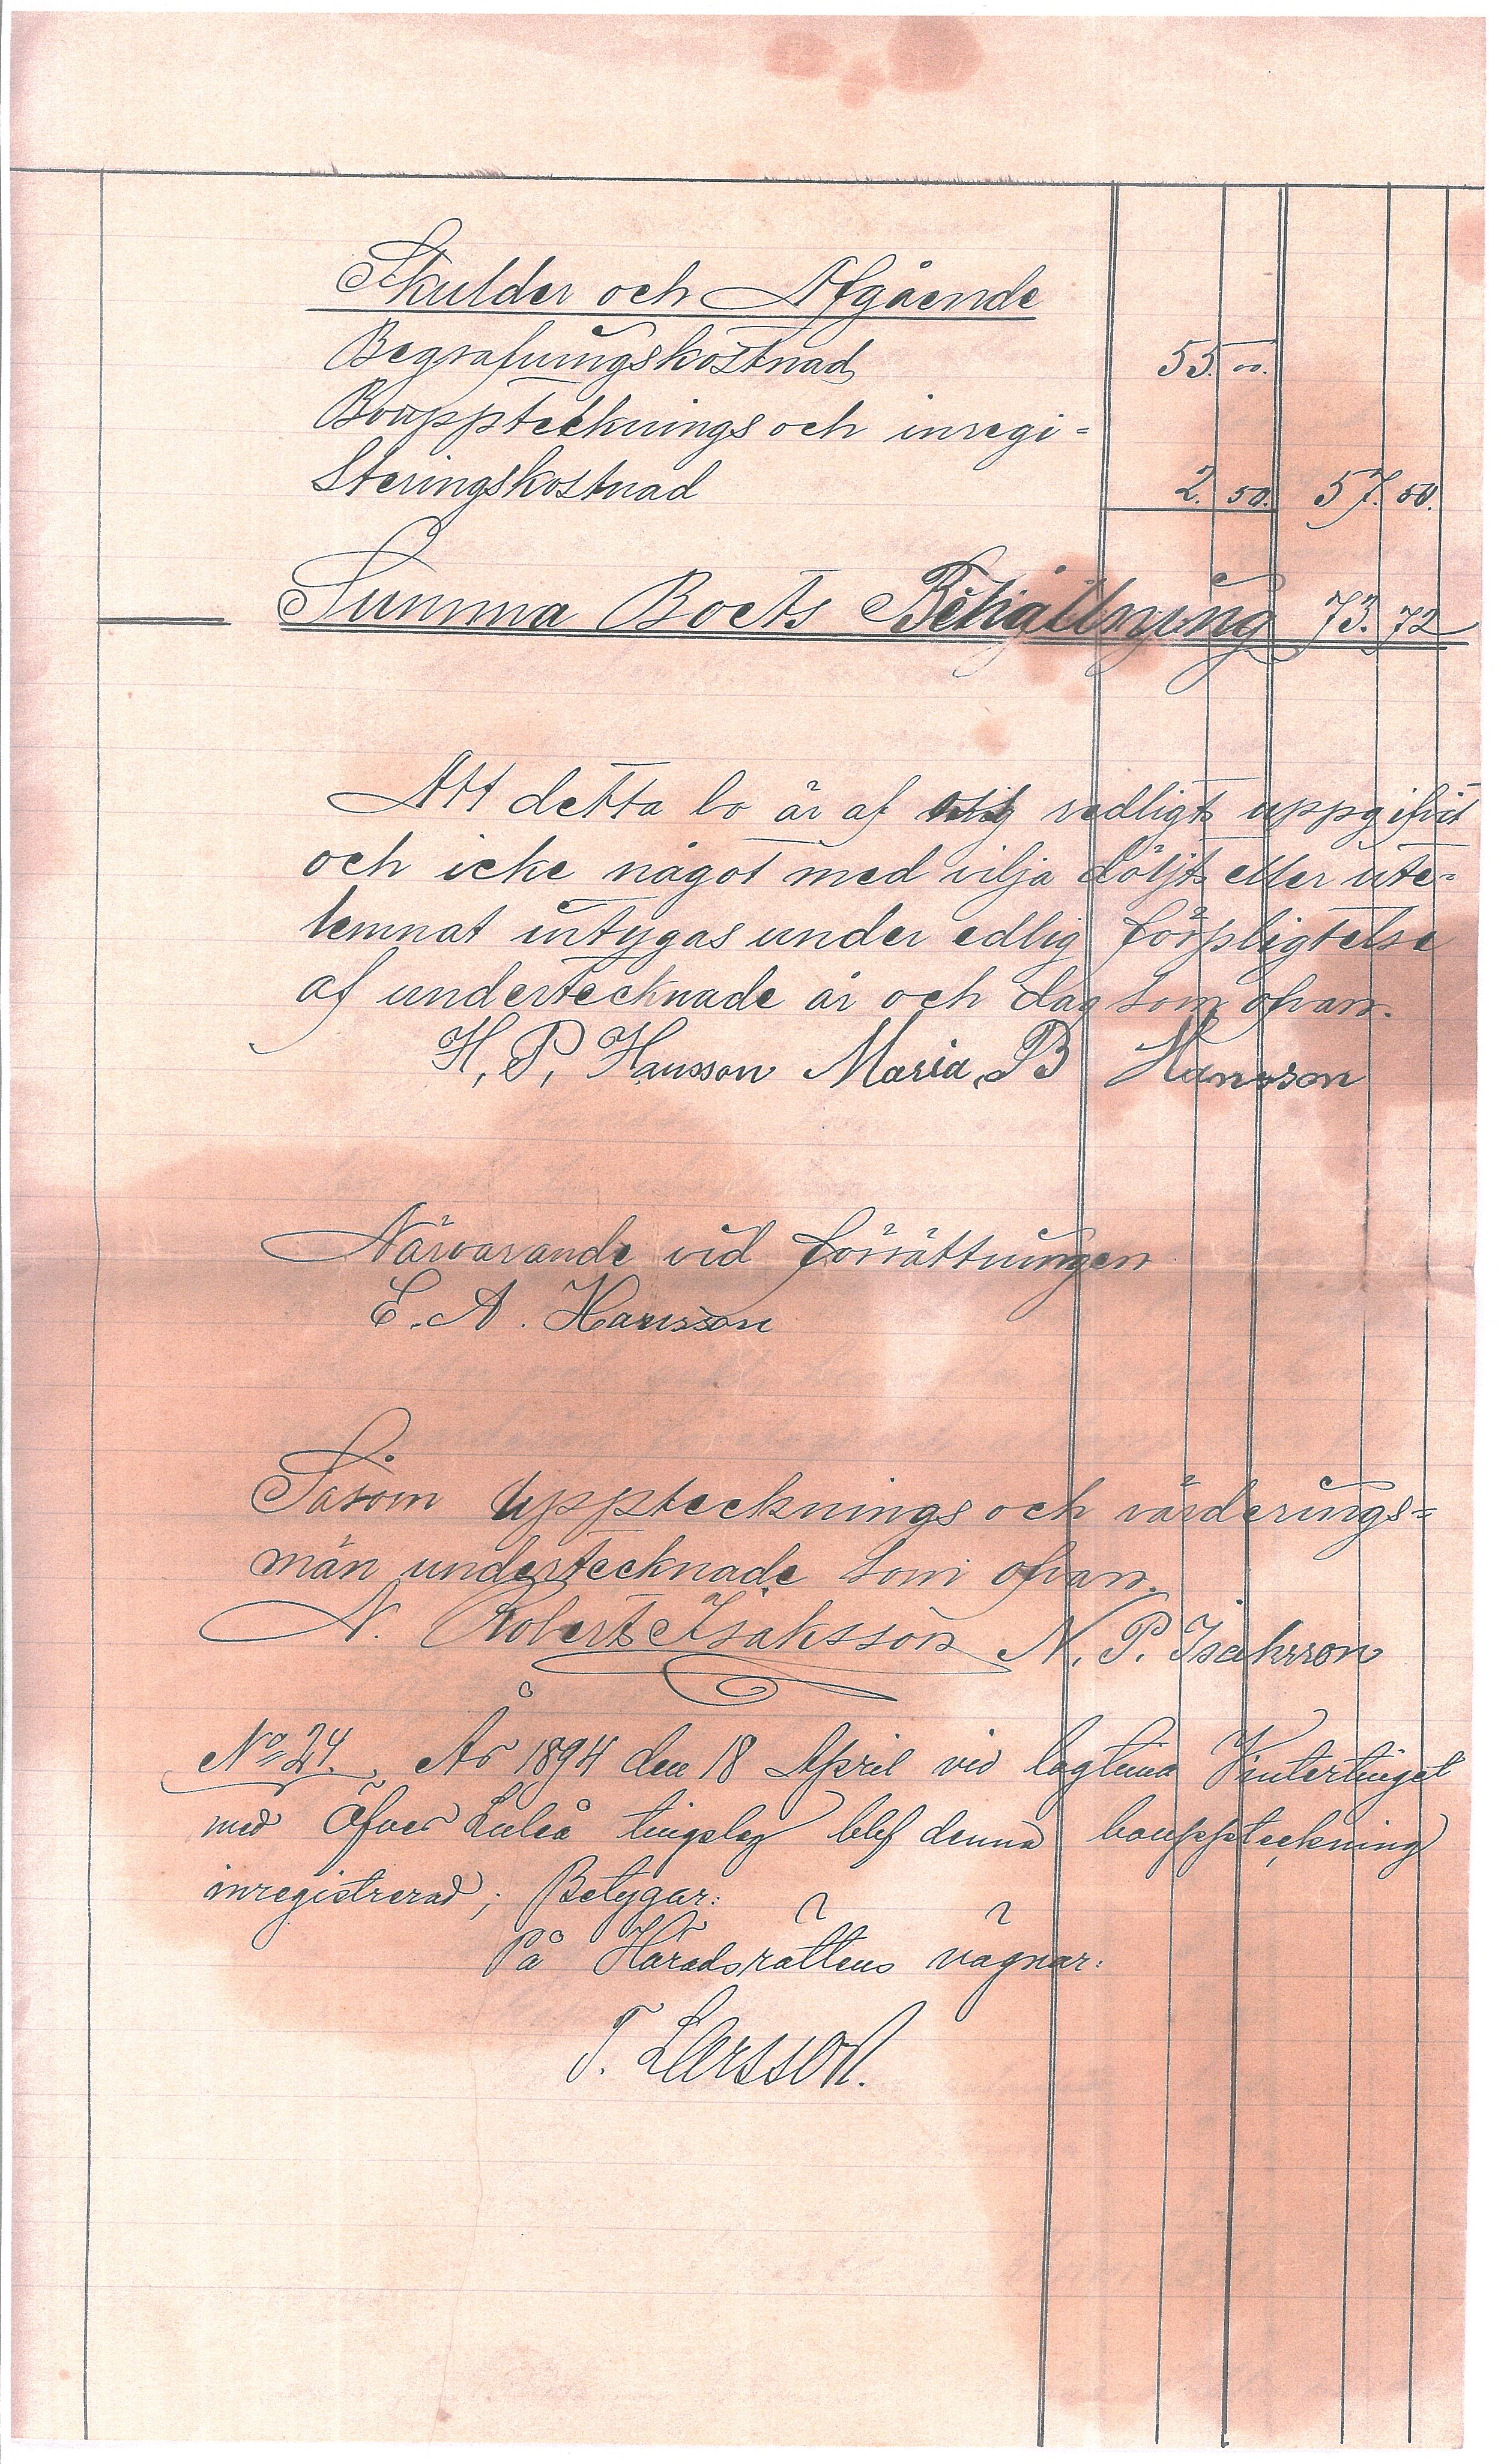 Skulder och Afgående
Begrafningskostnad 55. 00.
Bouppteknings och inregi=
steringskostnad 2. 50. 57. 50.
Summa Boets Behållning 73. 72
Att detta bo är af redligt uppgifvit
och icke något med vilja döljts eller ute=
lemnat intygas under edlig förpligtelse
af undertecknade år och dag som ofvan.
H, P, Hansson Maria, B Hansson
Närvarande vid förrättningen
E. A. Hansson
Såsom Upptecknings och värderings=
män undertecknade som ofvan.
N. Robert Isaksson N. P. Isaksson
No 24. År 1894 den 18 April vid lagtima Vintertinget
med Öfver Luleå tingslag blef denna bouppteckning
inregistrerad; Betygar:
På Häradsrättens vägnar:
T. Larsson.